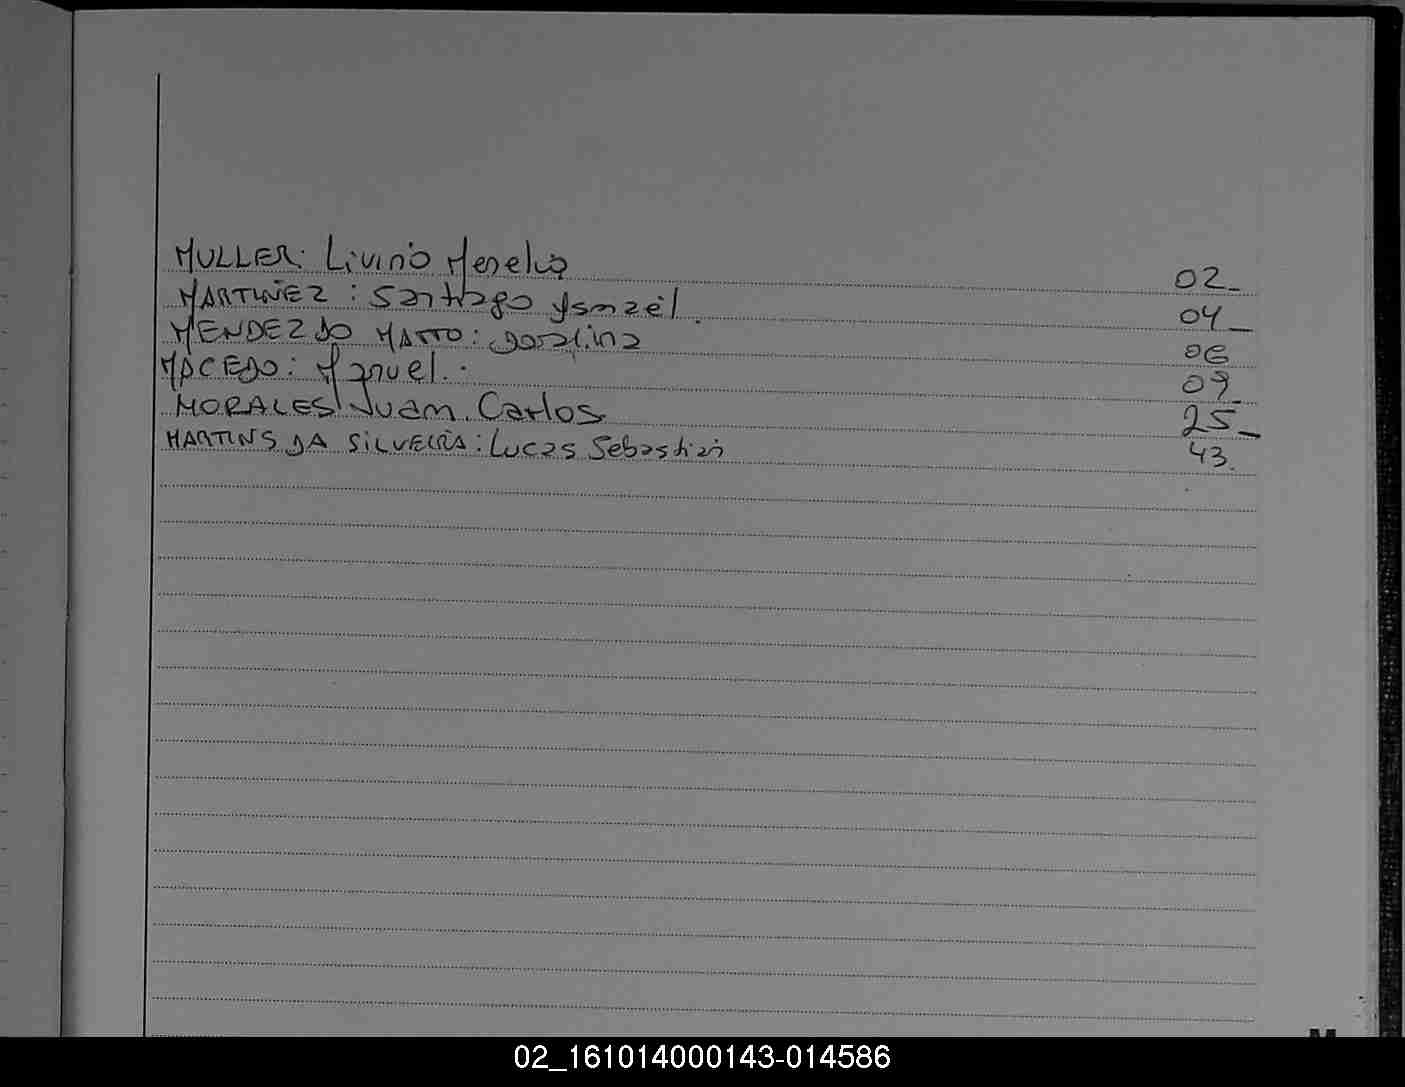 MULLER: Livino Menelio 02_
MARTINEZ: Santiago Ysmael. 04_
MENDEZ DO MATTO: 06
MACEDO: Manuel. 09_
MORALES Juam Carlos 25_
MARTINS DA SILVEIRA: Lucas Sebastián 43.
M
02_161014000143-014586